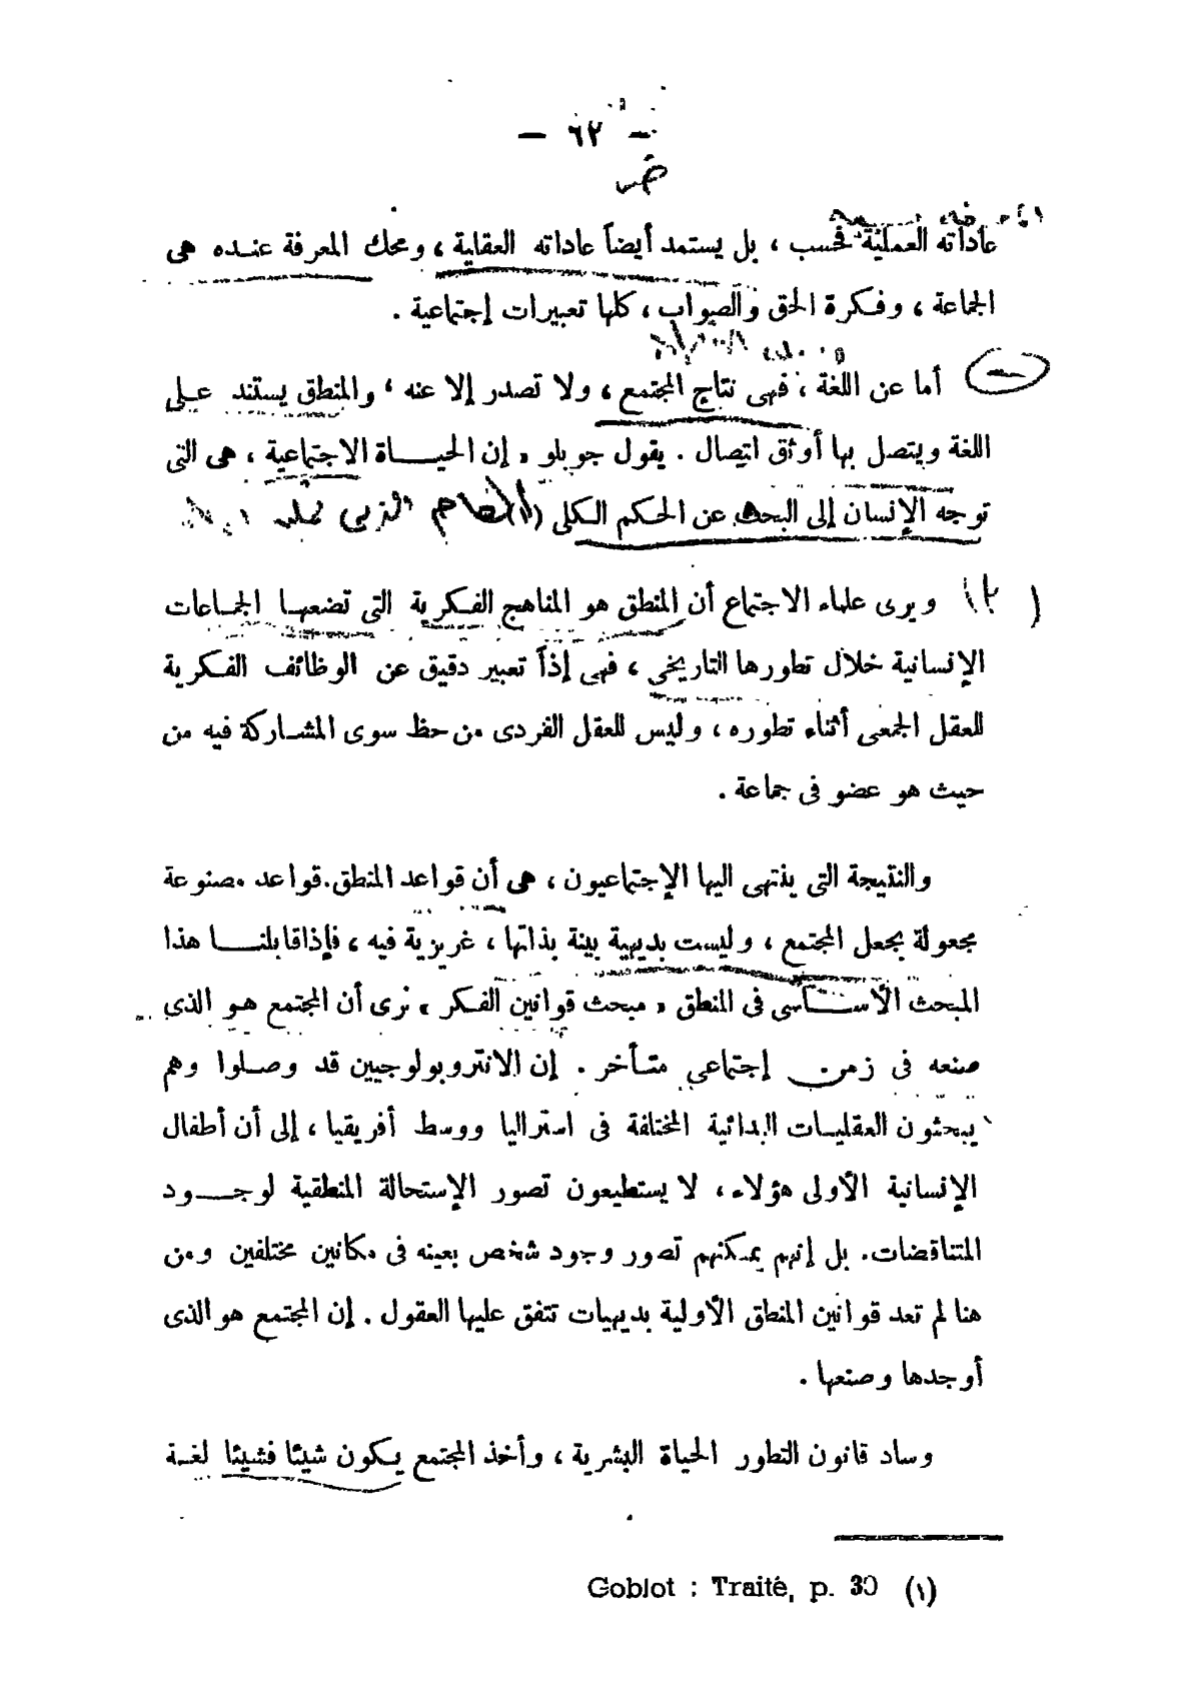 — ٦٢ —
عاداته العملية فحسب ، بل يستمد أيضاً عاداته العقلية ، ومحك المعرفة عنده هى
الجماعة ، وفكرة الحق والصواب ، كلها تعبيرات إجتماعية .
أما عن اللغة ، فهى نتاج المجتمع ، ولا تصدر إلا عنه ، والمنطق يستند على
اللغة ويتصل بها أوثق اتصال . يقول جوبلو « إن الحياة الاجتماعية ، هى التى
توجه الإنسان إلى البحث عن الحكم الكلى (١)
ويرى علماء الاجتماع أن المنطق هو المناهج الفكرية التى تضعها الجماعات
الإنسانية خلال تطورها التاريخى ، فهى إذاً تعبير دقيق عن الوظائف الفكرية
للعقل الجمعى أثناء تطوره ، وليس للعقل الفردى من حظ سوى المشاركة فيه من
حيث هو عضو فى جماعة .
والنتيجة التى ينتهى اليها الإجتماعيون ، هى أن قواعد المنطق . قواعد مصنوعة
مجعولة بجعل المجتمع ، وليست بديهية بينة بذاتها ، غريزية فيه ، فإذا قابلنا هذا
المبحث الأساسى فى المنطق « مبحث قوانين الفكر » نرى أن المجتمع هو الذى
صنعه فى زمن إجتماعى متأخر . إن الانتروبولوجيين قد وصلوا وهم
يبحثون العقليات البدائية المختلفة فى استراليا ووسط أفريقيا ، إلى أن أطفال
الإنسانية الأولى هؤلاء ، لا يستطيعون تصور الإستحالة المنطقية لوجود
المتناقضات . بل إنهم يمكنهم تصور وجود شخص بعينه فى مكانين مختلفين ومن
هنا لم تعد قوانين المنطق الأولية بديهيات تتفق عليها العقول . إن المجتمع هو الذى
أوجدها وصنعها .
وساد قانون التطور الحياة البشرية ، وأخذ المجتمع يكون شيئا فشيئا لغة
(١) Goblot : Traité, p. 30